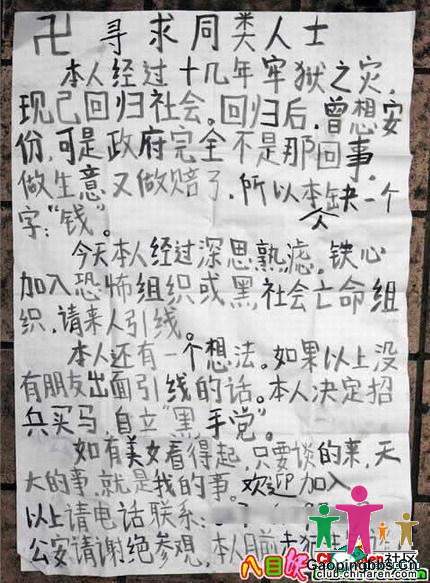 卍 寻求同类人士
本人经过十几年牢狱之灾,
现已回归社会。回归后,曾想安
份,可是政府完全不是那回事,
做生意又做赔了,所以本人缺一个
字:“钱”。
今天本人经过深思熟虑,铁心
加入恐怖组织或黑社会亡命组
织,请来人引线。
本人还有一个想法。如果以上没
有朋友出面引线的话。本人决定招
兵买马,自立“黑手党”。
如有美女看得起,只要谈的来,天
大的事,就是我的事。欢迎加入
以上请电话联系:
公安请谢绝参观,本人目前
八目妖
社区
Gaopingbbs.cn
club.chinaren.com